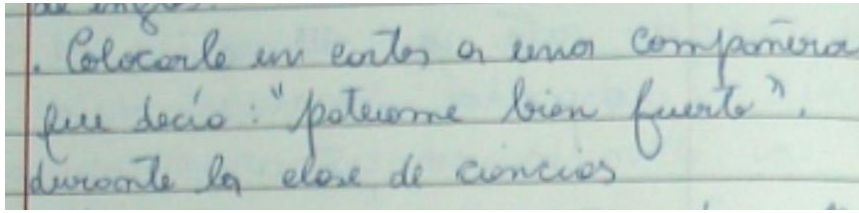 de inglés.
. Colocarle un cartel a una compañera
que decía: "pateame bien fuerte".
durante la clase de ciencias